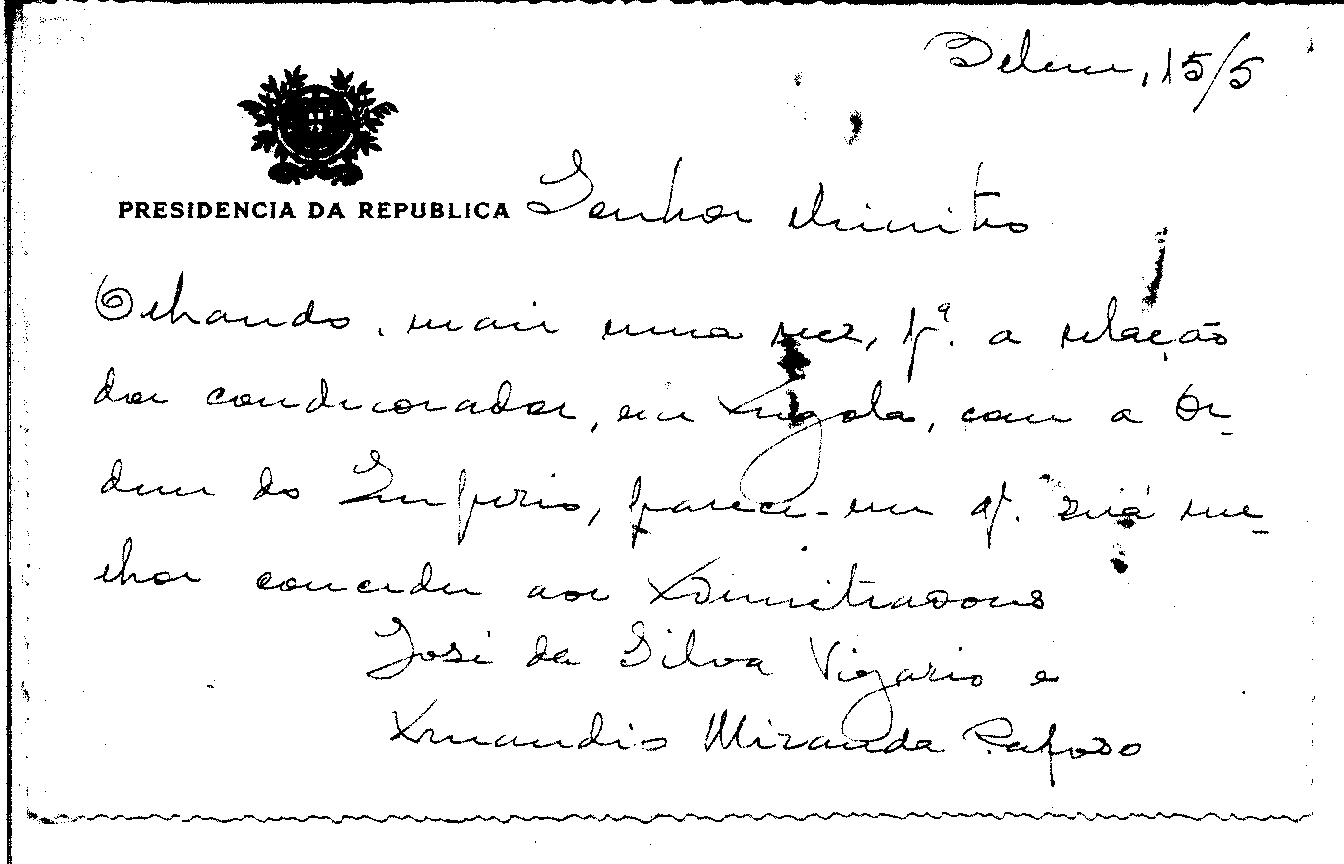 Belem, 15/5
PRESIDENCIA DA REPUBLICA
Senhor Ministro
Olhando, mais uma vez, pª. a relação
dos condecorados, em Angola, com a Or-
dem do Imperio, parece-me q. será me-
lhor conceder aos Administradores
José da Silva Vigario e
Amandio Miranda Raposo